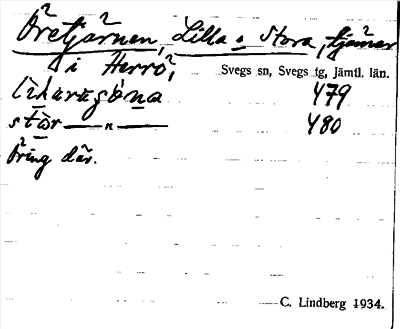 Öretjärnen, Lilla o Stora, tjärnar
i Herrö,
Svegs sn, Svegs tg, Jämtl. län.
479
stòr — " — 480
Öring där.
C. Lindberg 1934.